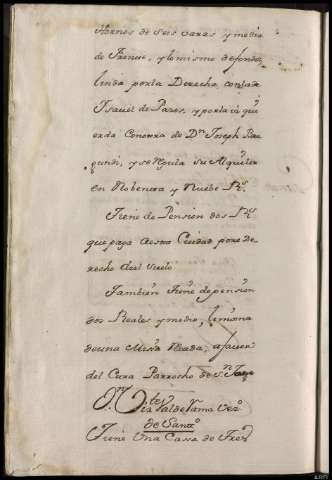 de seis varas y media
de Frente, y lo mismo de fondo,
linda por la Derecha con la de
Isavel de Pazos, y por la izqui
erda con otra de Dn. Joseph
y se Regula su Alquiler
en Nobenta y Nuebe Rs.
Tiene de Pension dos Rs.
que paga a esta Ciudad por de
recho del suelo
Tambien tiene de pension
dos Reales y medio, limosna
de una Missa Rezada, a favor
del Cura Parrocho de Sn.
de Sanro.
Tiene Una Cassa de Fren